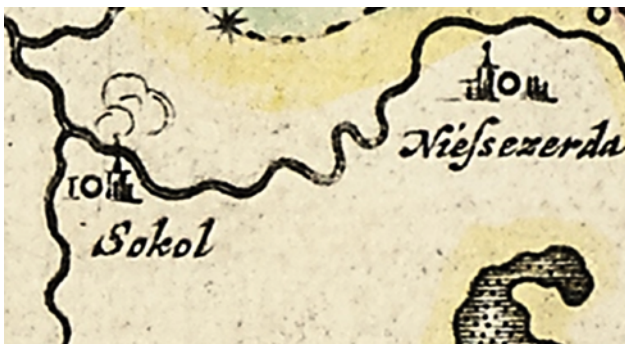 Nieſsezerda
Sokol